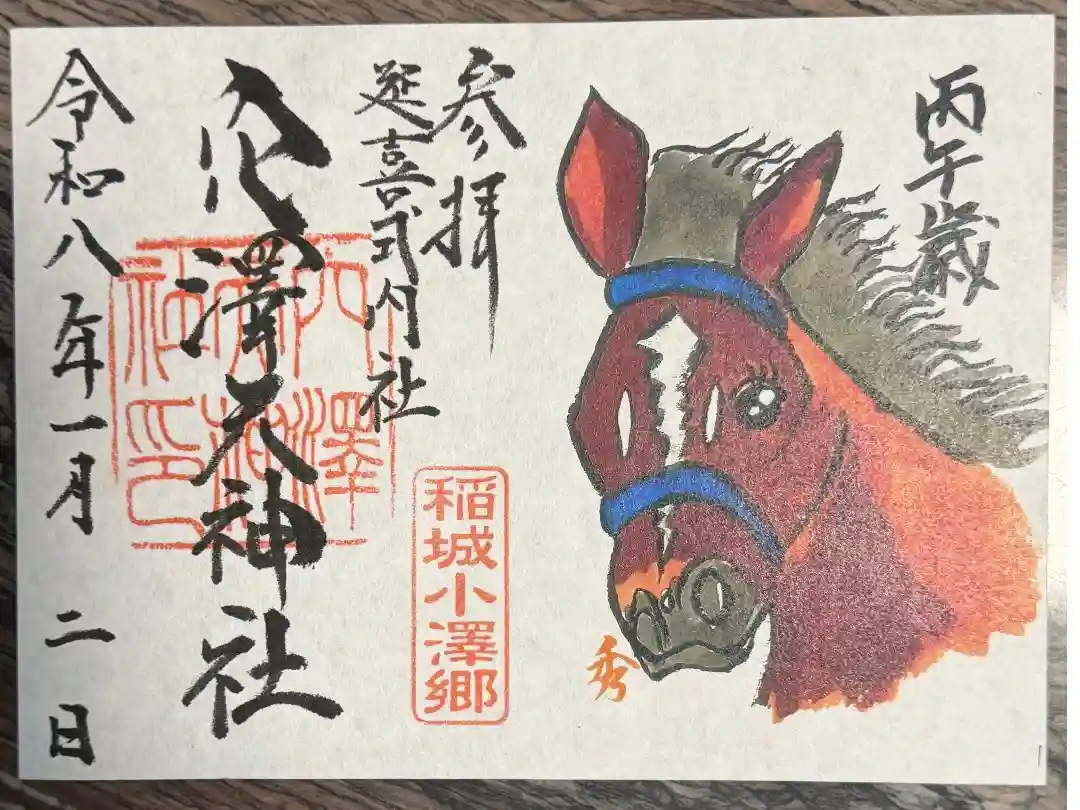 丙午歳
参拝
延喜式内社
穴澤天神社
令和八年一月二日
穴澤
天神
社印
稲城小澤郷
秀